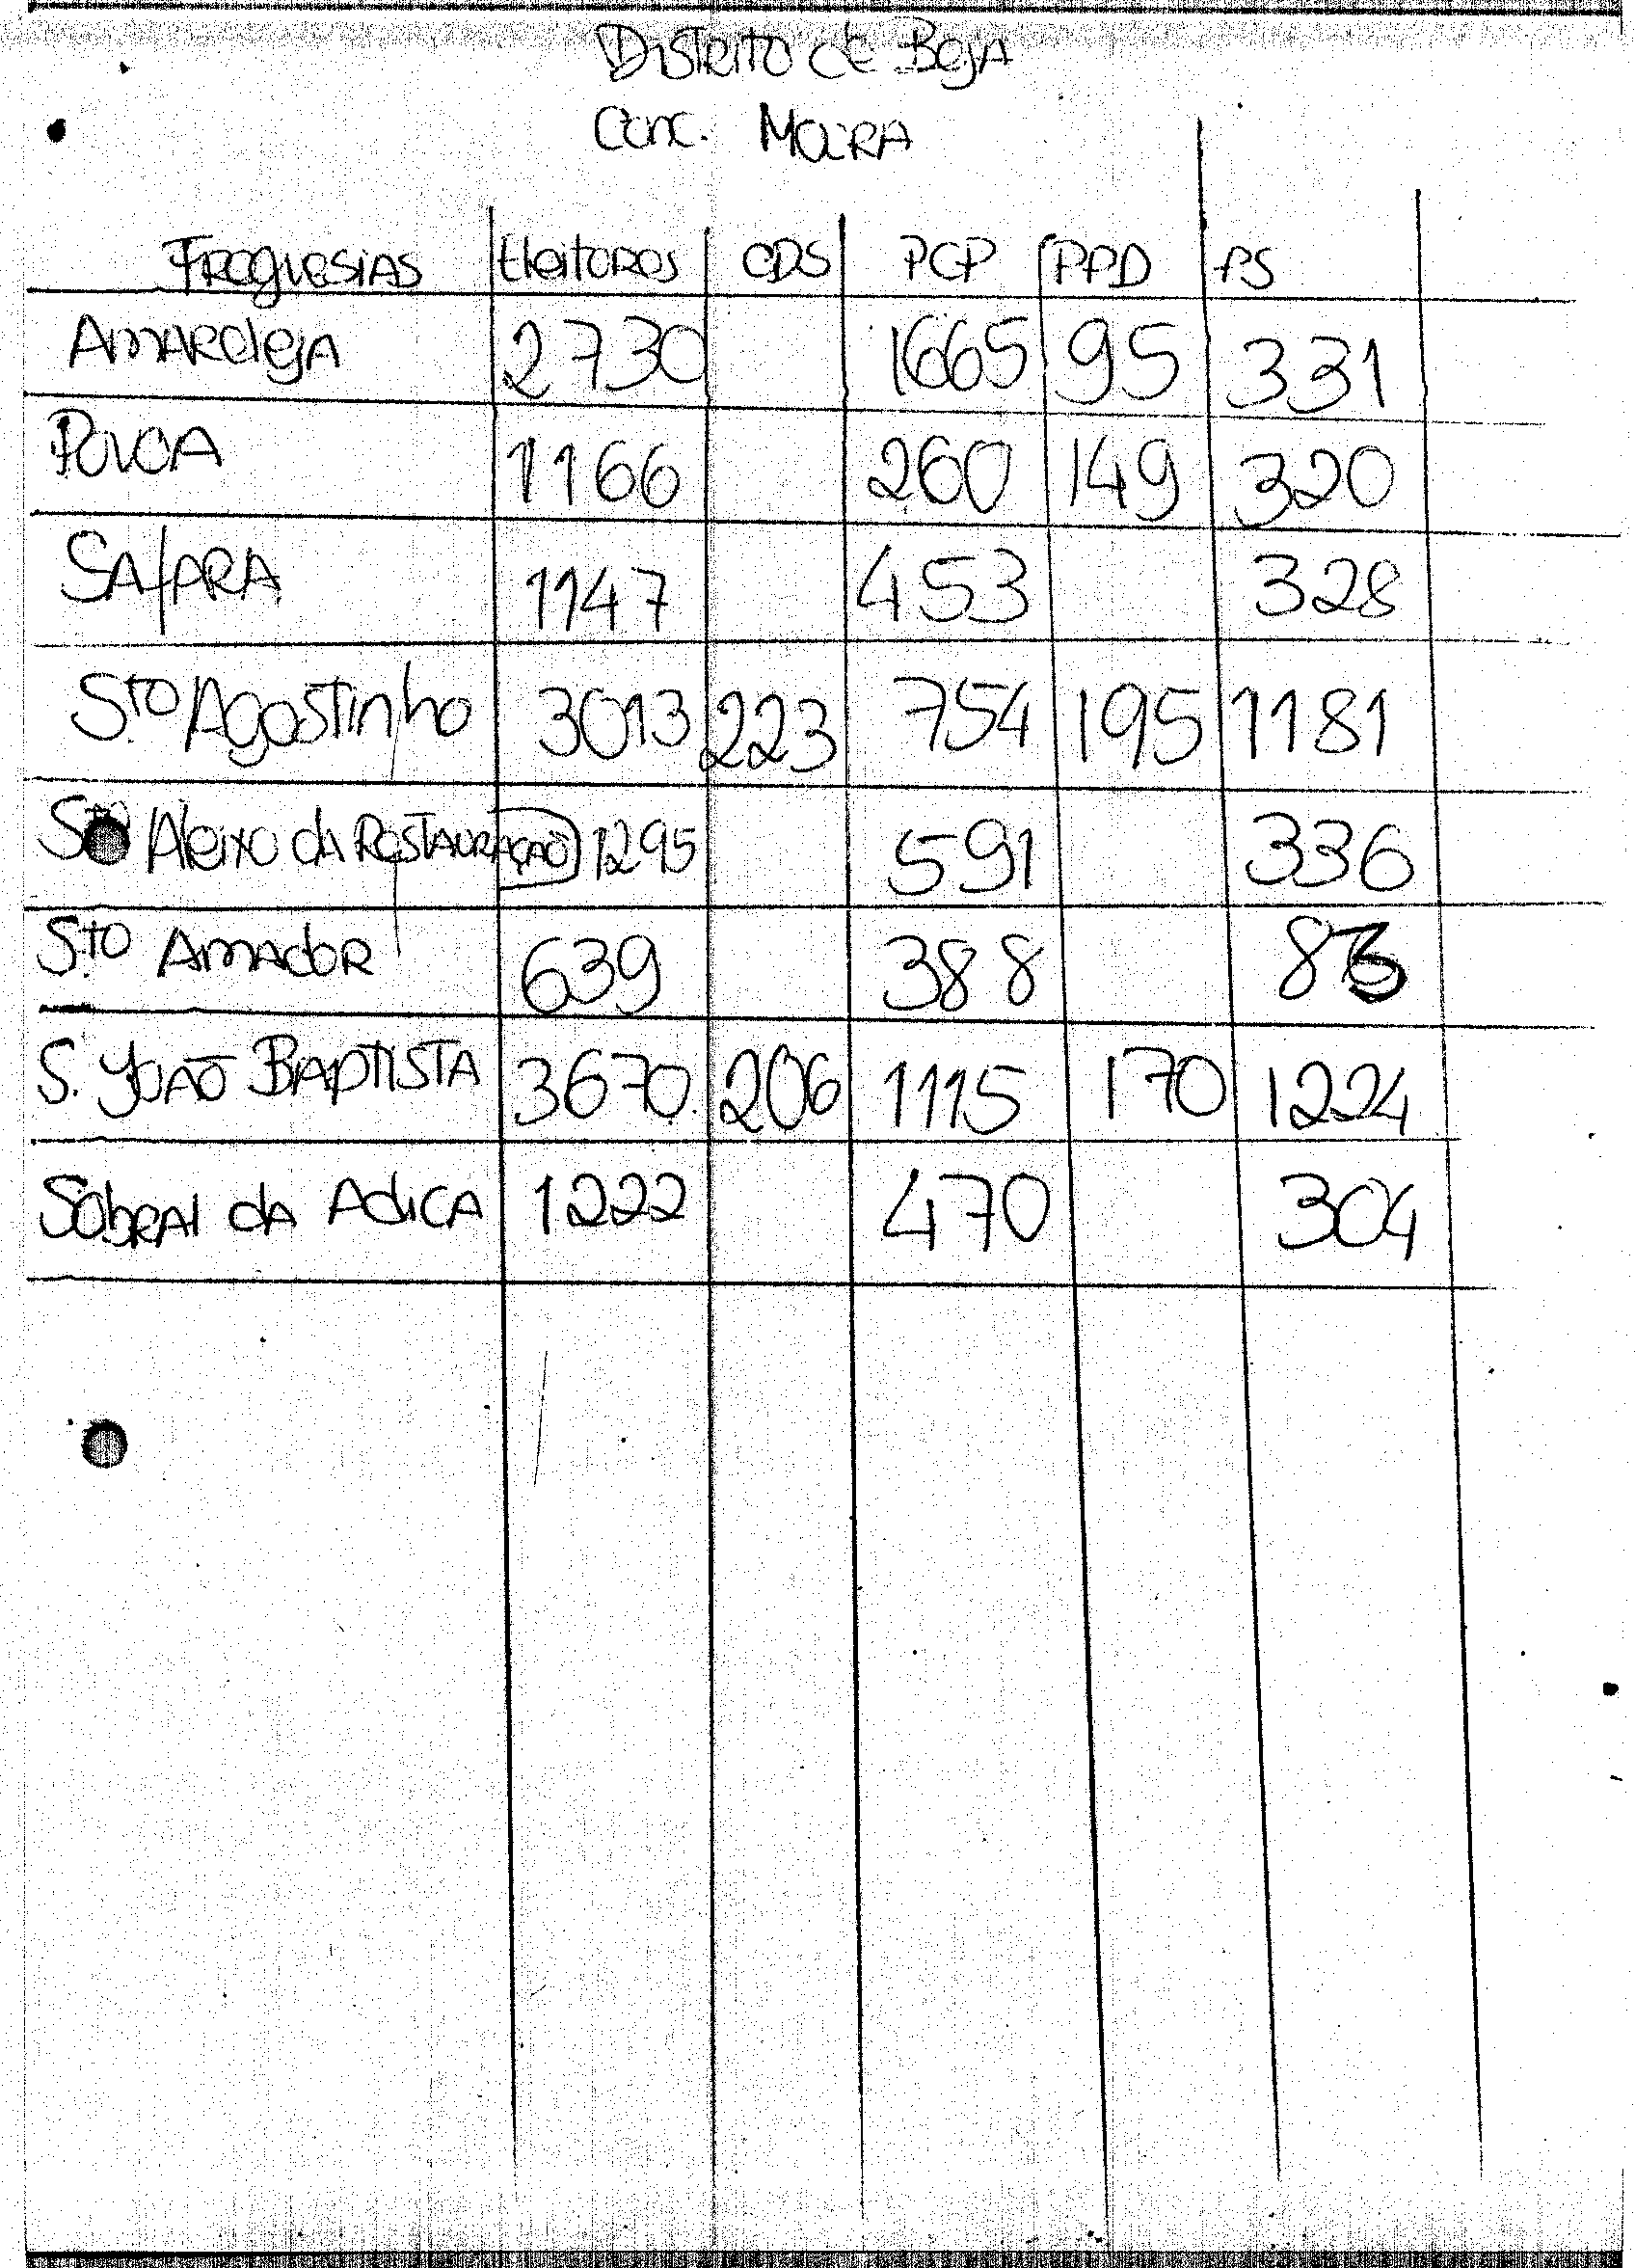 Distrito de Beja
Conc. Moura
Freguesias Eleitores CDS PCP PPD PS
Amareleja 2730 1665 95 331
Povoa 1166 260 149 320
Safara 1147 453 328
Sto Agostinho 3013 223 754 195 1181
Sto Aleixo da Restauração 1295 591 336
Sto Amador 639 388
S. João Baptista 3670 206 1115 170 1224
Sobral da Adiça 1222 470 304